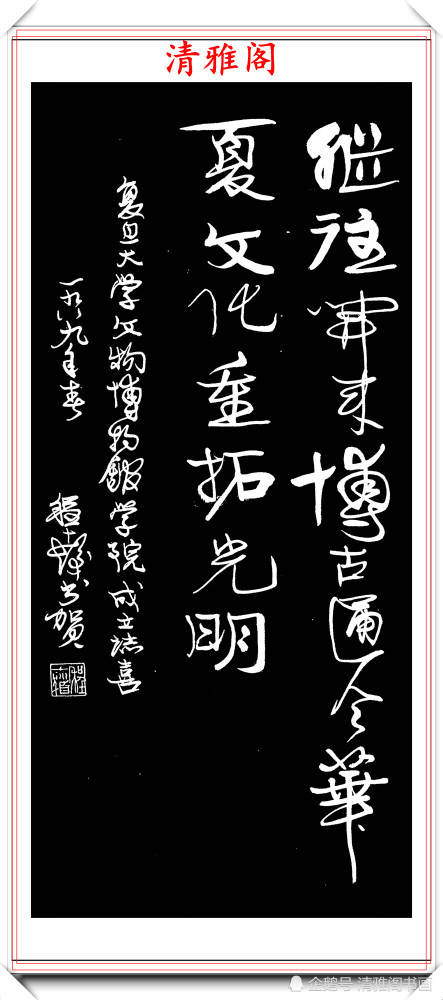 清雅阁
继往开来博古通今華
夏文化重拓光明
复旦大学文物博物館学院成立誌喜
一九八九年春
程十發书賀
企鹅号 清雅阁书画